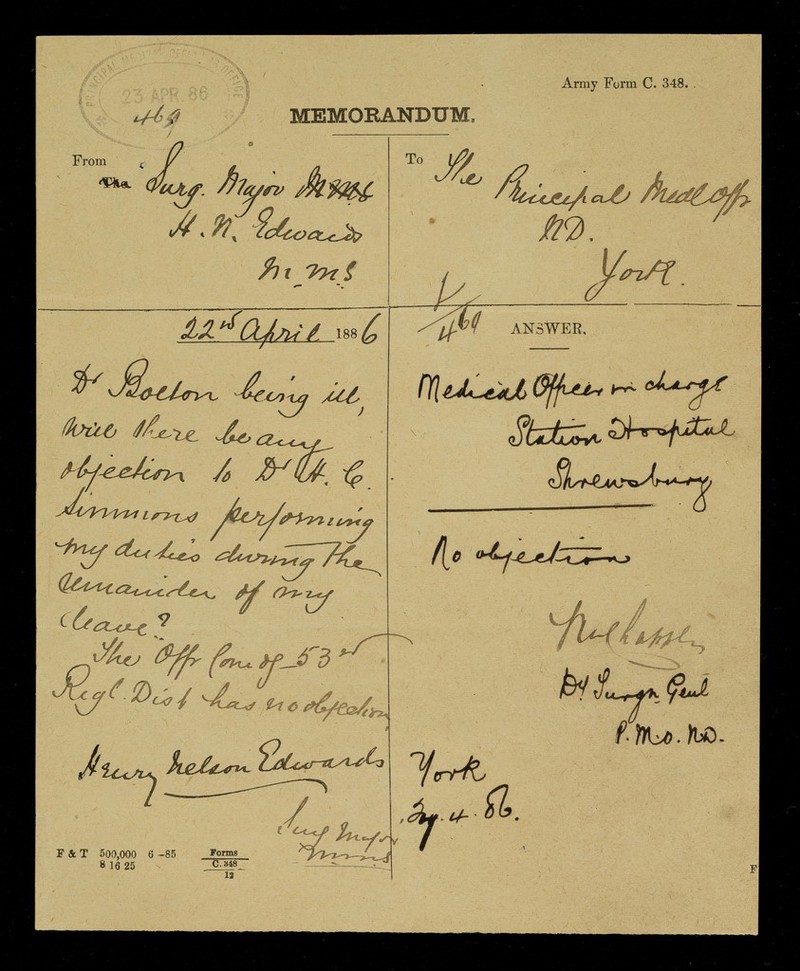 PRINCIPAL MEDICAL OFFICER'S OFFICE
23 APR. 86
469
Army Form C. 348.
MEMORANDUM.
From
The Surg. Major
H. N. Edwards
M.M.S
22nd April 1886
Dr Bolton being ill,
will there be any
objection to Dr H. C.
Simmons performing
my duties during the
remainder of my
leave?
The Offr Comg 53rd
Regl. Dist has no objection
Henry Nelson Edwards
Surg Major
F & T 500,000 6-85
8 16 25
Forms
C. 348
12
To The
Principal Medl Offr
N.D.
York.
1/469
ANSWER.
Medical Officer in charge
Station Hospital
Shrewsbury
No objection
Dy Surgn. Genl
P.M.O. N.D.
York
4. 86.
F